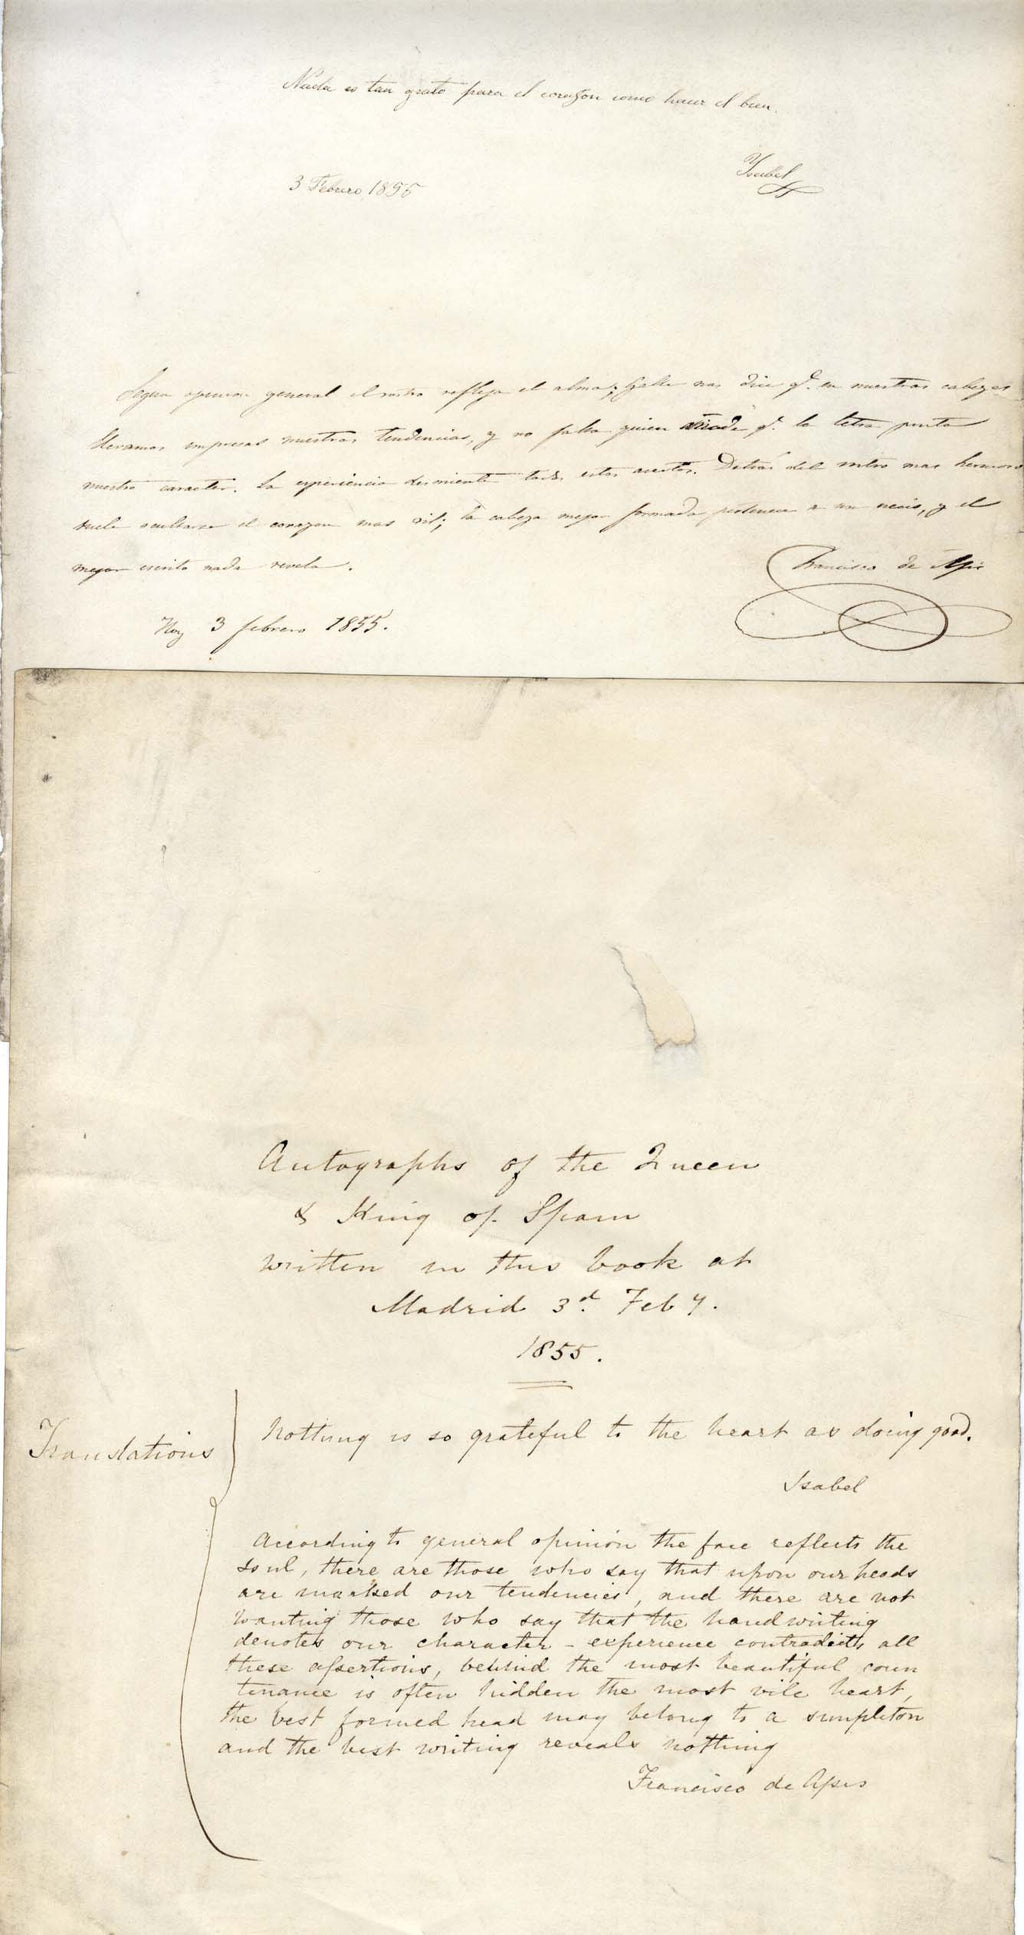 Nada es tan grato para el corazon como hacer el bien.
Ysabel
3 Febrero 1855
Segun opinion general el rostro refleja el alma; Galla nos dice q.e en nuestras cabezas
llevamos impresas nuestras tendencias, y no falta quien añade q.e la letra pinta
nuestro caracter. La experiencia desmiente todos estos asertos. Detrás del rostro mas hermoso
suele ocultarse el corazon mas vil; la cabeza mejor formada pertenece a un necio, y el
mejor escrito nada revela.
Francisco de Asis
Hoy 3 febrero 1855.
Autographs of the Queen
& King of Spain
written in this book at
Madrid 3d. Feby.
1855.
Translations
Nothing is so grateful to the heart as doing good.
Isabel
According to general opinion the face reflects the
soul, there are those who say that upon our heads
are marked our tendencies, and there are not
wanting those who say that the handwriting
denotes our character - experience contradicts all
these assertions, behind the most beautiful coun
tenance is often hidden the most vile heart,
the best formed head may belong to a simpleton
and the best writing reveals nothing
Francisco de Asis